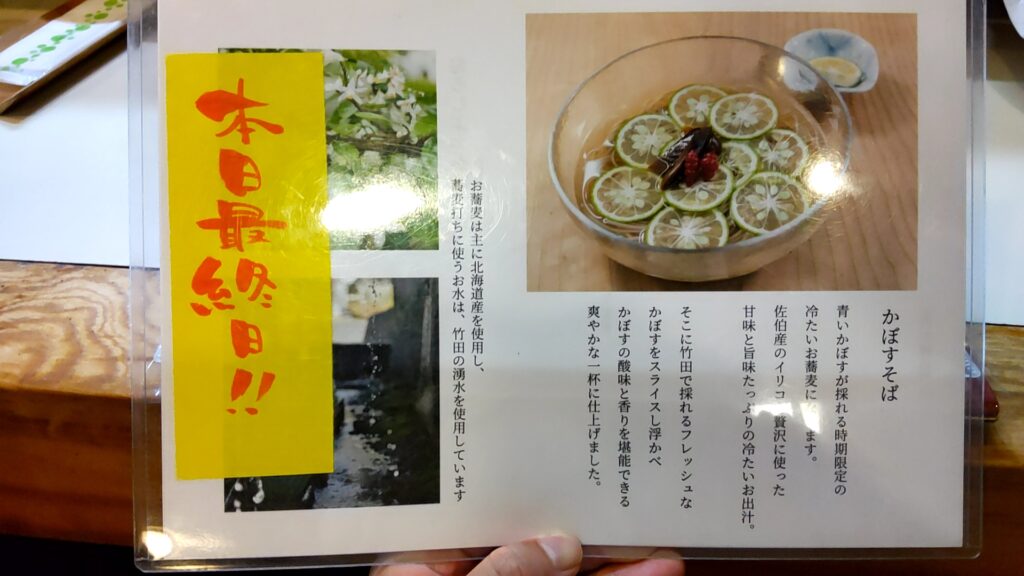 かぼすそば
青いかぼすが採れる時期限定の
冷たいお蕎麦に
ます。
佐伯産のイリコ
贅沢に使った
甘味と旨味たっぷりの冷たいお出汁。
そこに竹田で採れるフレッシュな
かぼすをスライスし浮かべ
かぼすの酸味と香りを堪能できる
爽やかな一杯に仕上げました。
お蕎麦は主に北海道産を使用し、
蕎麦打ちに使うお水は、竹田の湧水を使用しています
本日最終日!!